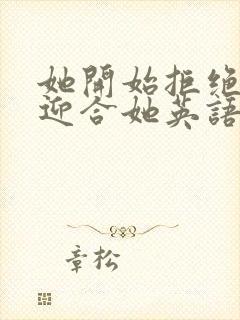 她開始拒绝
迎合她英語
章松